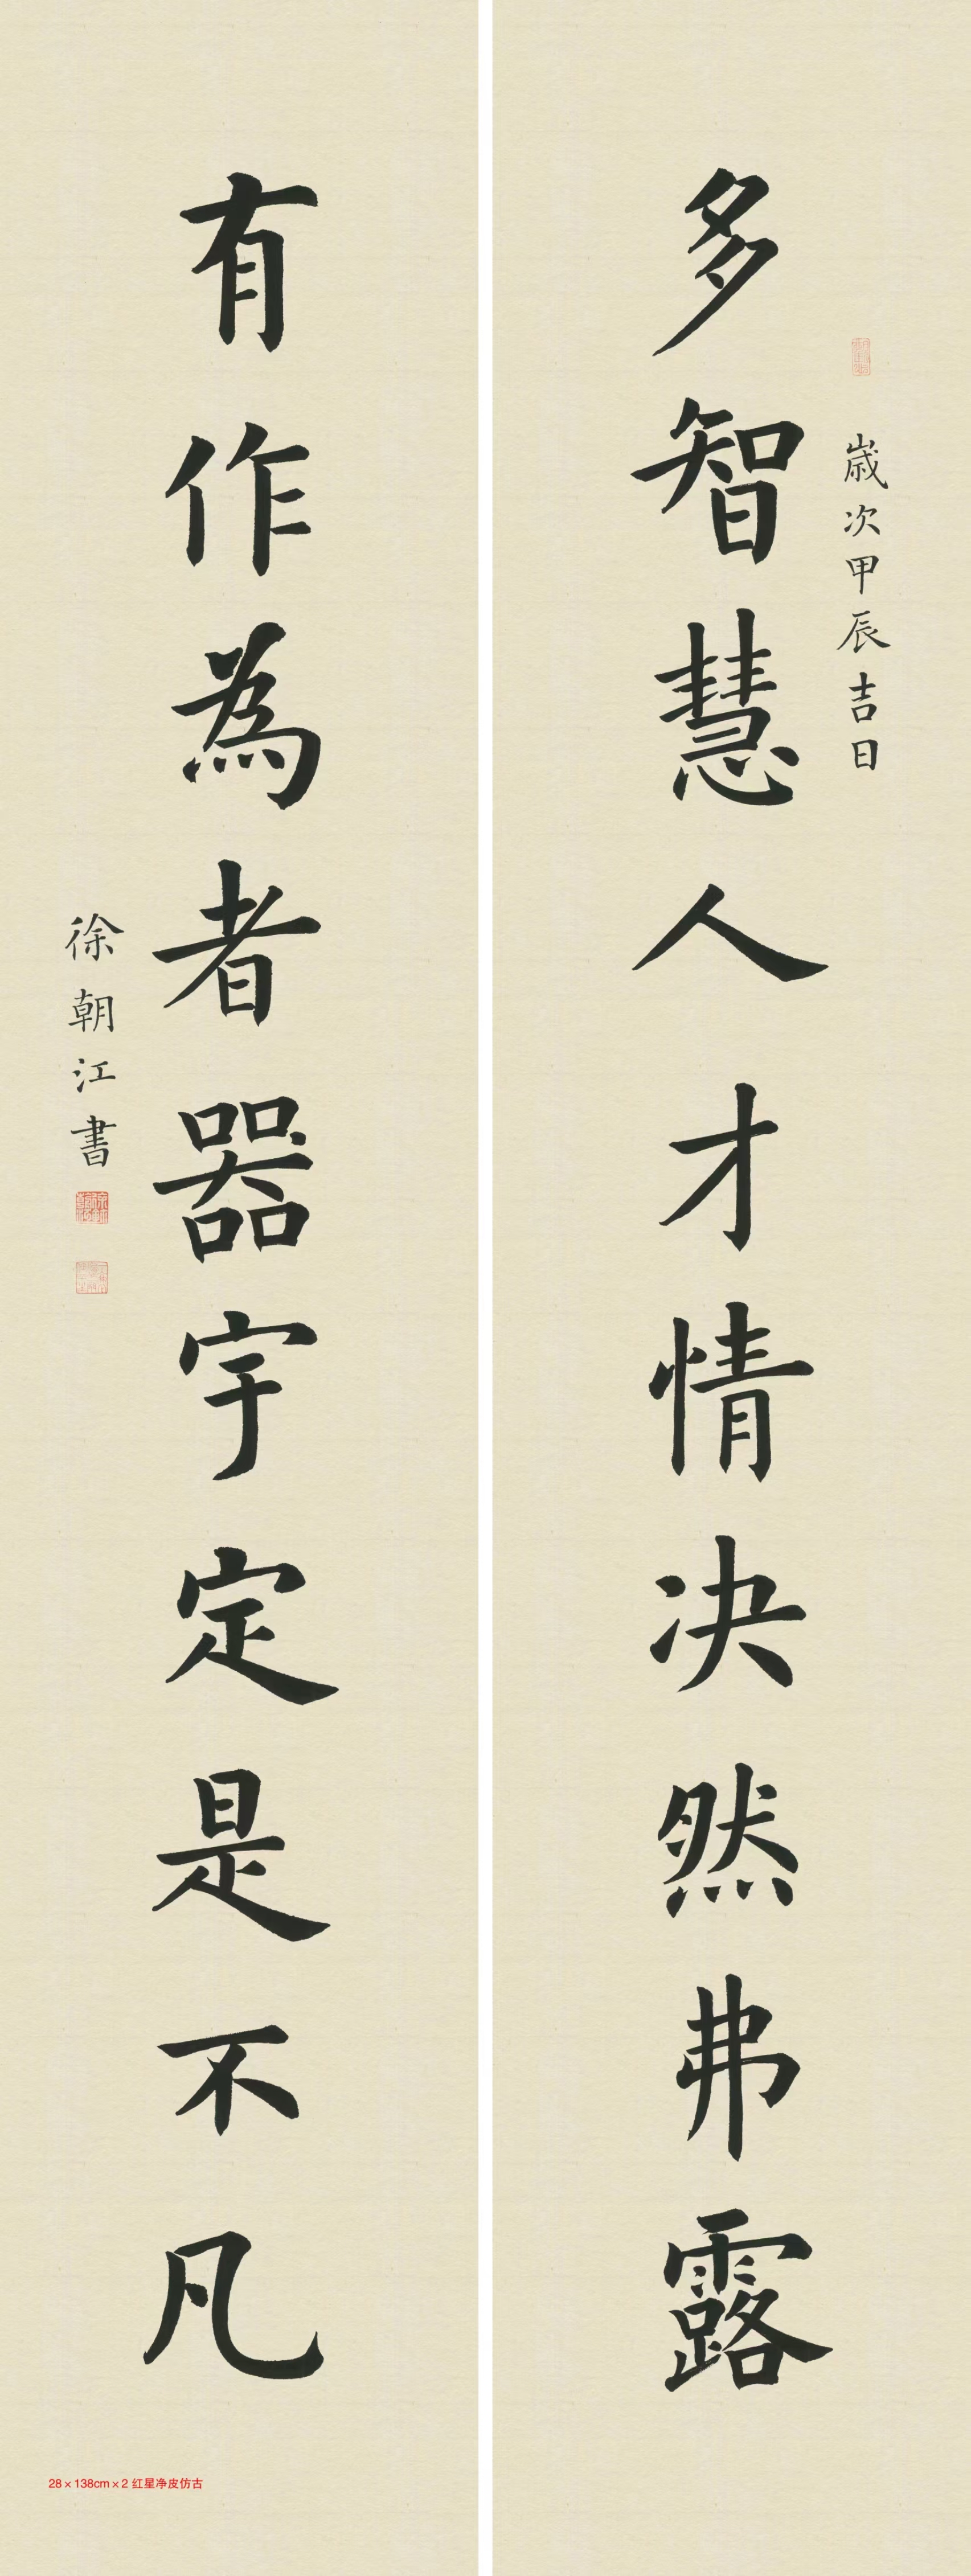 歲次甲辰吉日
多智慧人才情决然弗露
有作為者器宇定是不凡
徐朝江書
28×138cm×2 红星净皮仿古